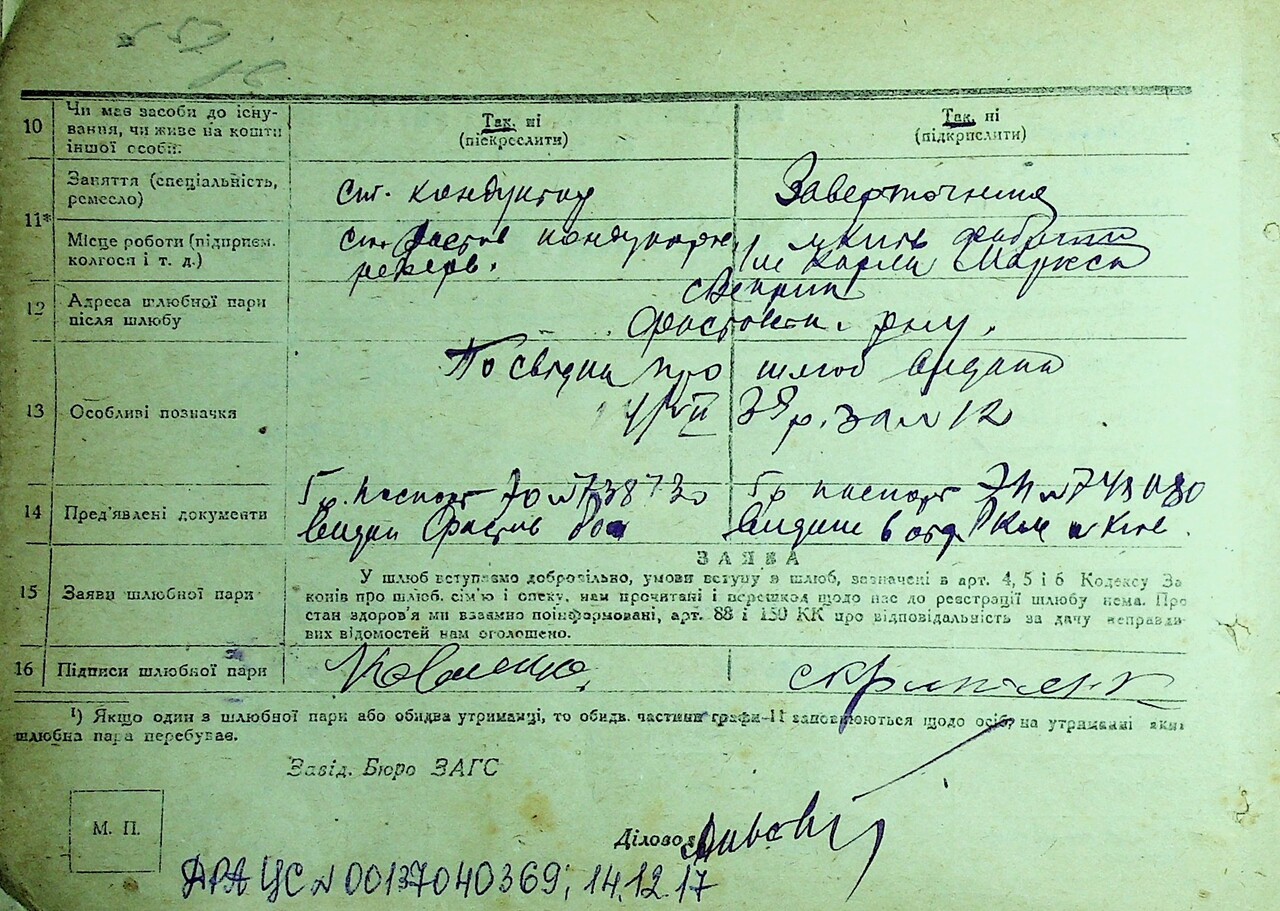 10 Чи має засоби до існу-
вання, чи живе на кошти
іншої особи:
Так, ні
(піскреслити)
Так, ні
(підкрислити)
11* Заняття (спеціальність,
ремесло)
ст. кондуктор
Заверточниця
Місце роботи (підприєм.
колгосп і т. д.)
ст. Фастов кондукторск
резерв.
м Київ фабрика
ім Карла Маркса
12 Адреса шлюбної пари
після шлюбу
с Веприк
Фастівськ. рну.
13 Особливі позначки
Посвідка про шлюб видана
39 р. за № 12
14 Пред'явлені документи
Гр. паспорт № 738730
видан Фастів
Гр паспорт № 743080
видане в отд
15 Заяви шлюбної пари
ЗАЯВА
У шлюб вступаємо добровільно, умови вступу в шлюб, зазначені в арт. 4, 5 і 6 Кодексу За
конів про шлюб, сім'ю і опеку, нам прочитані і перешкод щодо нас до реєстрації шлюбу нема. Про
стан здоров'я ми взаємно поінформовані, арт. 88 і 150 КК про відповідальність за дачу неправди
вих відомостей нам оголошено.
16 Підписи шлюбної пари
1) Якщо один з шлюбної пари або обидва утриманці, то обидв. частини графи-11 заповнюються щодо осіб, на утриманні яких
шлюбна пара перебуває.
Завід. Бюро ЗАГС
М. П.
Діловод
ДРАЦС № 00137040369; 14.12.17